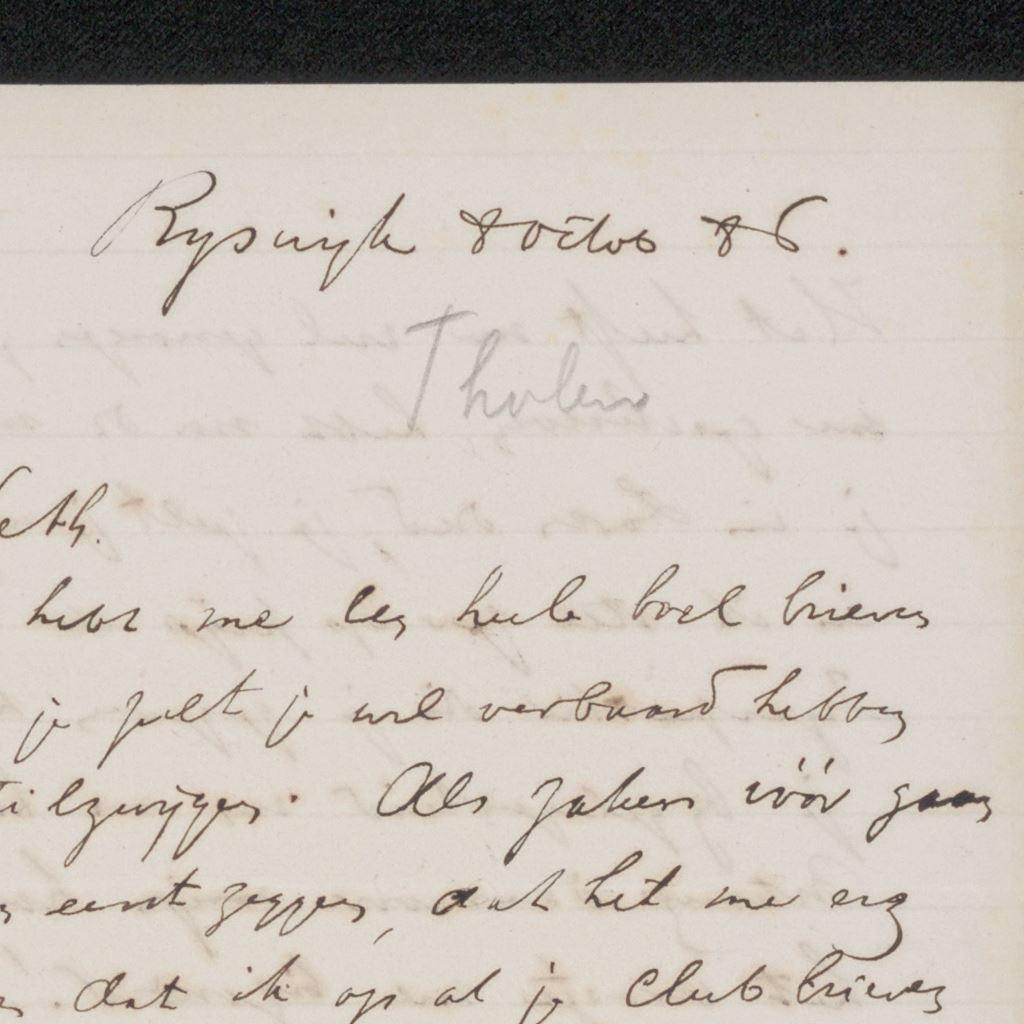 Ryswijk 8 Octob 86.
Tholen
Veth.
hebt me een heele boel brieven
je zult je wel verbaasd hebben
stilzwijgen. Als zaken vóór gaan
eerst zeggen, dat het me erg
dat ik op al je club brieven